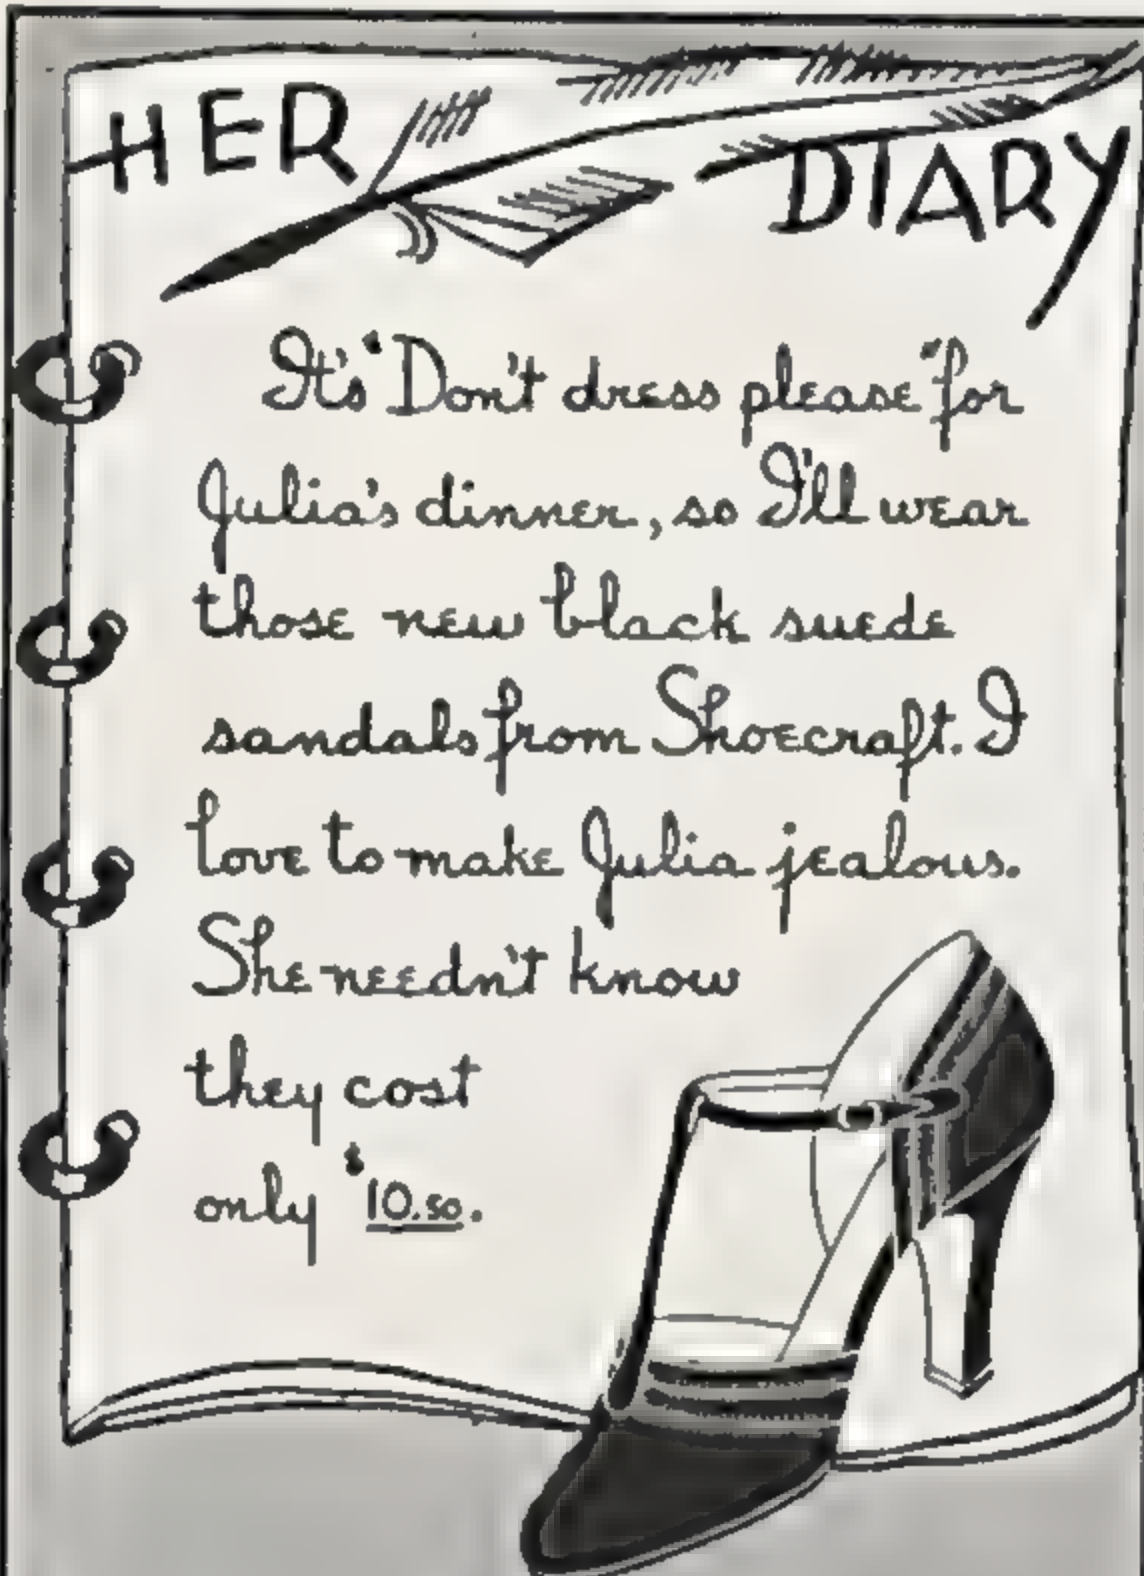 HER DIARY
It's "Don't dress please" for
Julia's dinner, so I'll wear
those new black suede
sandals from Shoecraft. I
love to make Julia jealous.
She needn't know
they cost
only $10.50.